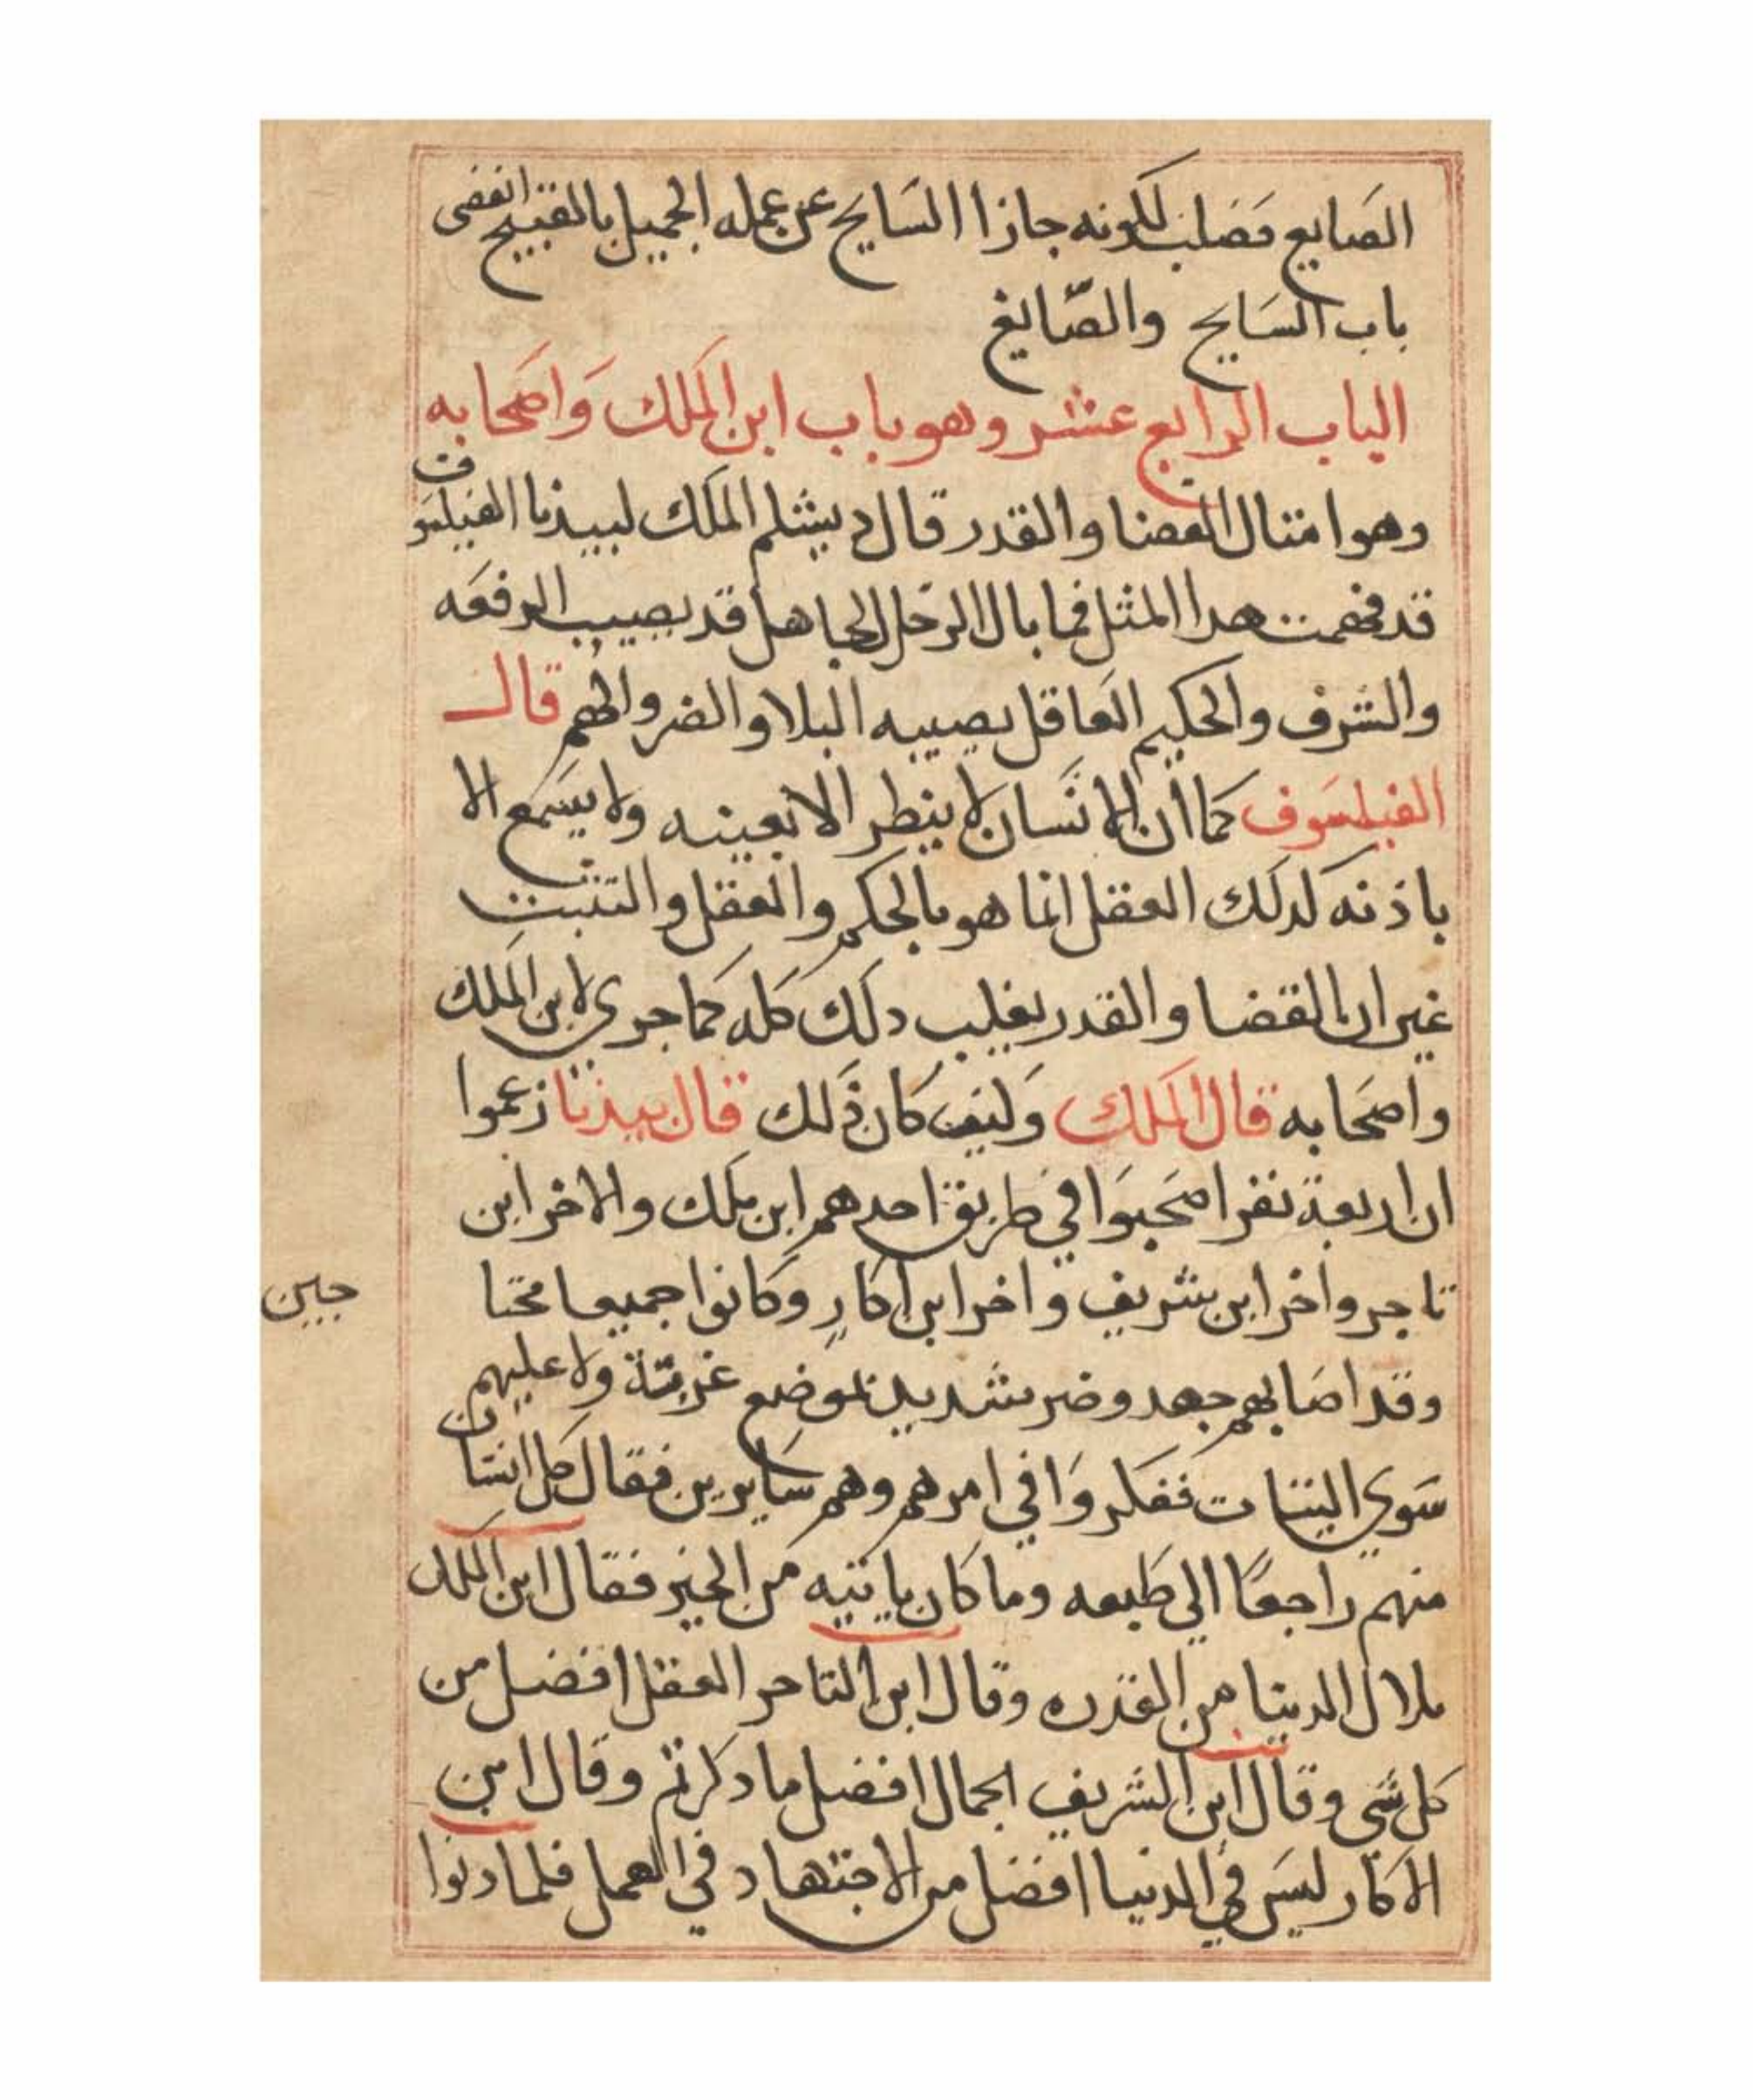 الصايع فصلب لكونه جازا السَايح عن عمله الجميل بالقبيح انقضى
باب السَايح والصّايغ
الباب الرابع عشر وهو باب ابن الملك وَاصحَابه
وهو امتال القضا والقدر قال دبيشلم الملك لبيدبا الفيلسَوف
قد فهمت هدا المثل فما بال الرجل الجاهل قد يصيب الرفعَه
والشرف والحكيم العَاقل يصيبه البلا والضر والهم قال
الفيلسَوف كما أن الانسَان لا ينظر الا بعينه ولا يسَمع الا
باذنه كدلك العقل انما هو بالحكم والعقل والتثبت
غير ان القضا والقدر يغلب دلك كله كما جرى لابن الملك
واصحَابه قال الملك وَكيف كان ذَلك قال بيدبا زعموا
ان اربعة نفر اصحَبوَا في طريق احدهم ابن ملك والاخر ابن
تاجر واخر ابن شريف واخر ابن اكارٍ وكانوا جميعا محتا
جين
وقد اصَابهم جهد وضر شديد بموضع غربة ولا عليهم
سَوي الثيات ففكروَا في امرهم وهم سَايرين فقال كل انسَان
منهم راجعًا الي طبعه وما كان ياتيه من الخير فقال ابن الملك
ملاال الدينا من القدره وقال ابن التاجر العقل افضل من
كل شَي وقال ابن الشريف الجمال افضل ما دكرتم وقال ابن
الاكّار ليسَ في الدنيا افضل من الاجتهاد في العمل فلما دنوا